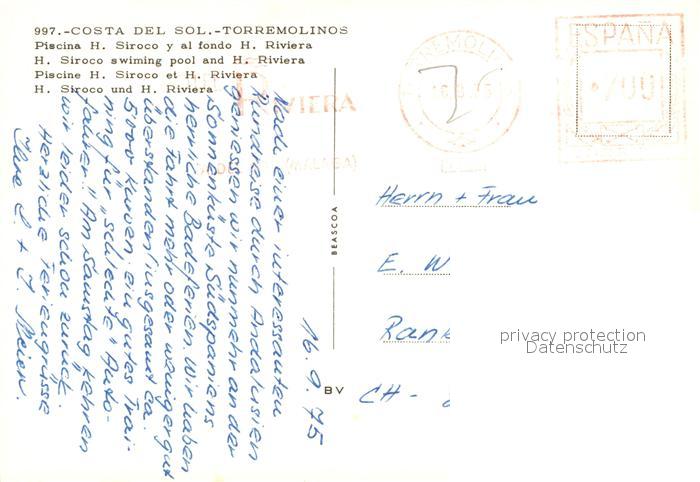 997.-COSTA DEL SOL.-TORREMOLINOS
Piscina H. Siroco y al fondo H. Riviera
H. Siroco swiming pool and H. Riviera
Piscine H. Siroco et H. Riviera
H. Siroco und H. Riviera
RIVIERA
(MALAGA)
ESPAÑA
BEASCOA
BV
16.9.75
Nach einer interessanten
Rundreise durch Andalusien
geniessen wir nunmehr an der
Sonnenküste Südspaniens
herrliche Badeferien. Wir haben
die Fahrt mehr oder weniger gut
überstanden (insgesamt ca.
5000 Kurven ein gutes Trai-
ning für "schlechte" Auto-
fahrer. Am Samstag kehren
wir leider schon zurück.
Herzliche Feriengrüsse
Ihre
Herrn + Frau
E. W
Rank
CH -
privacy protection
Datenschutz